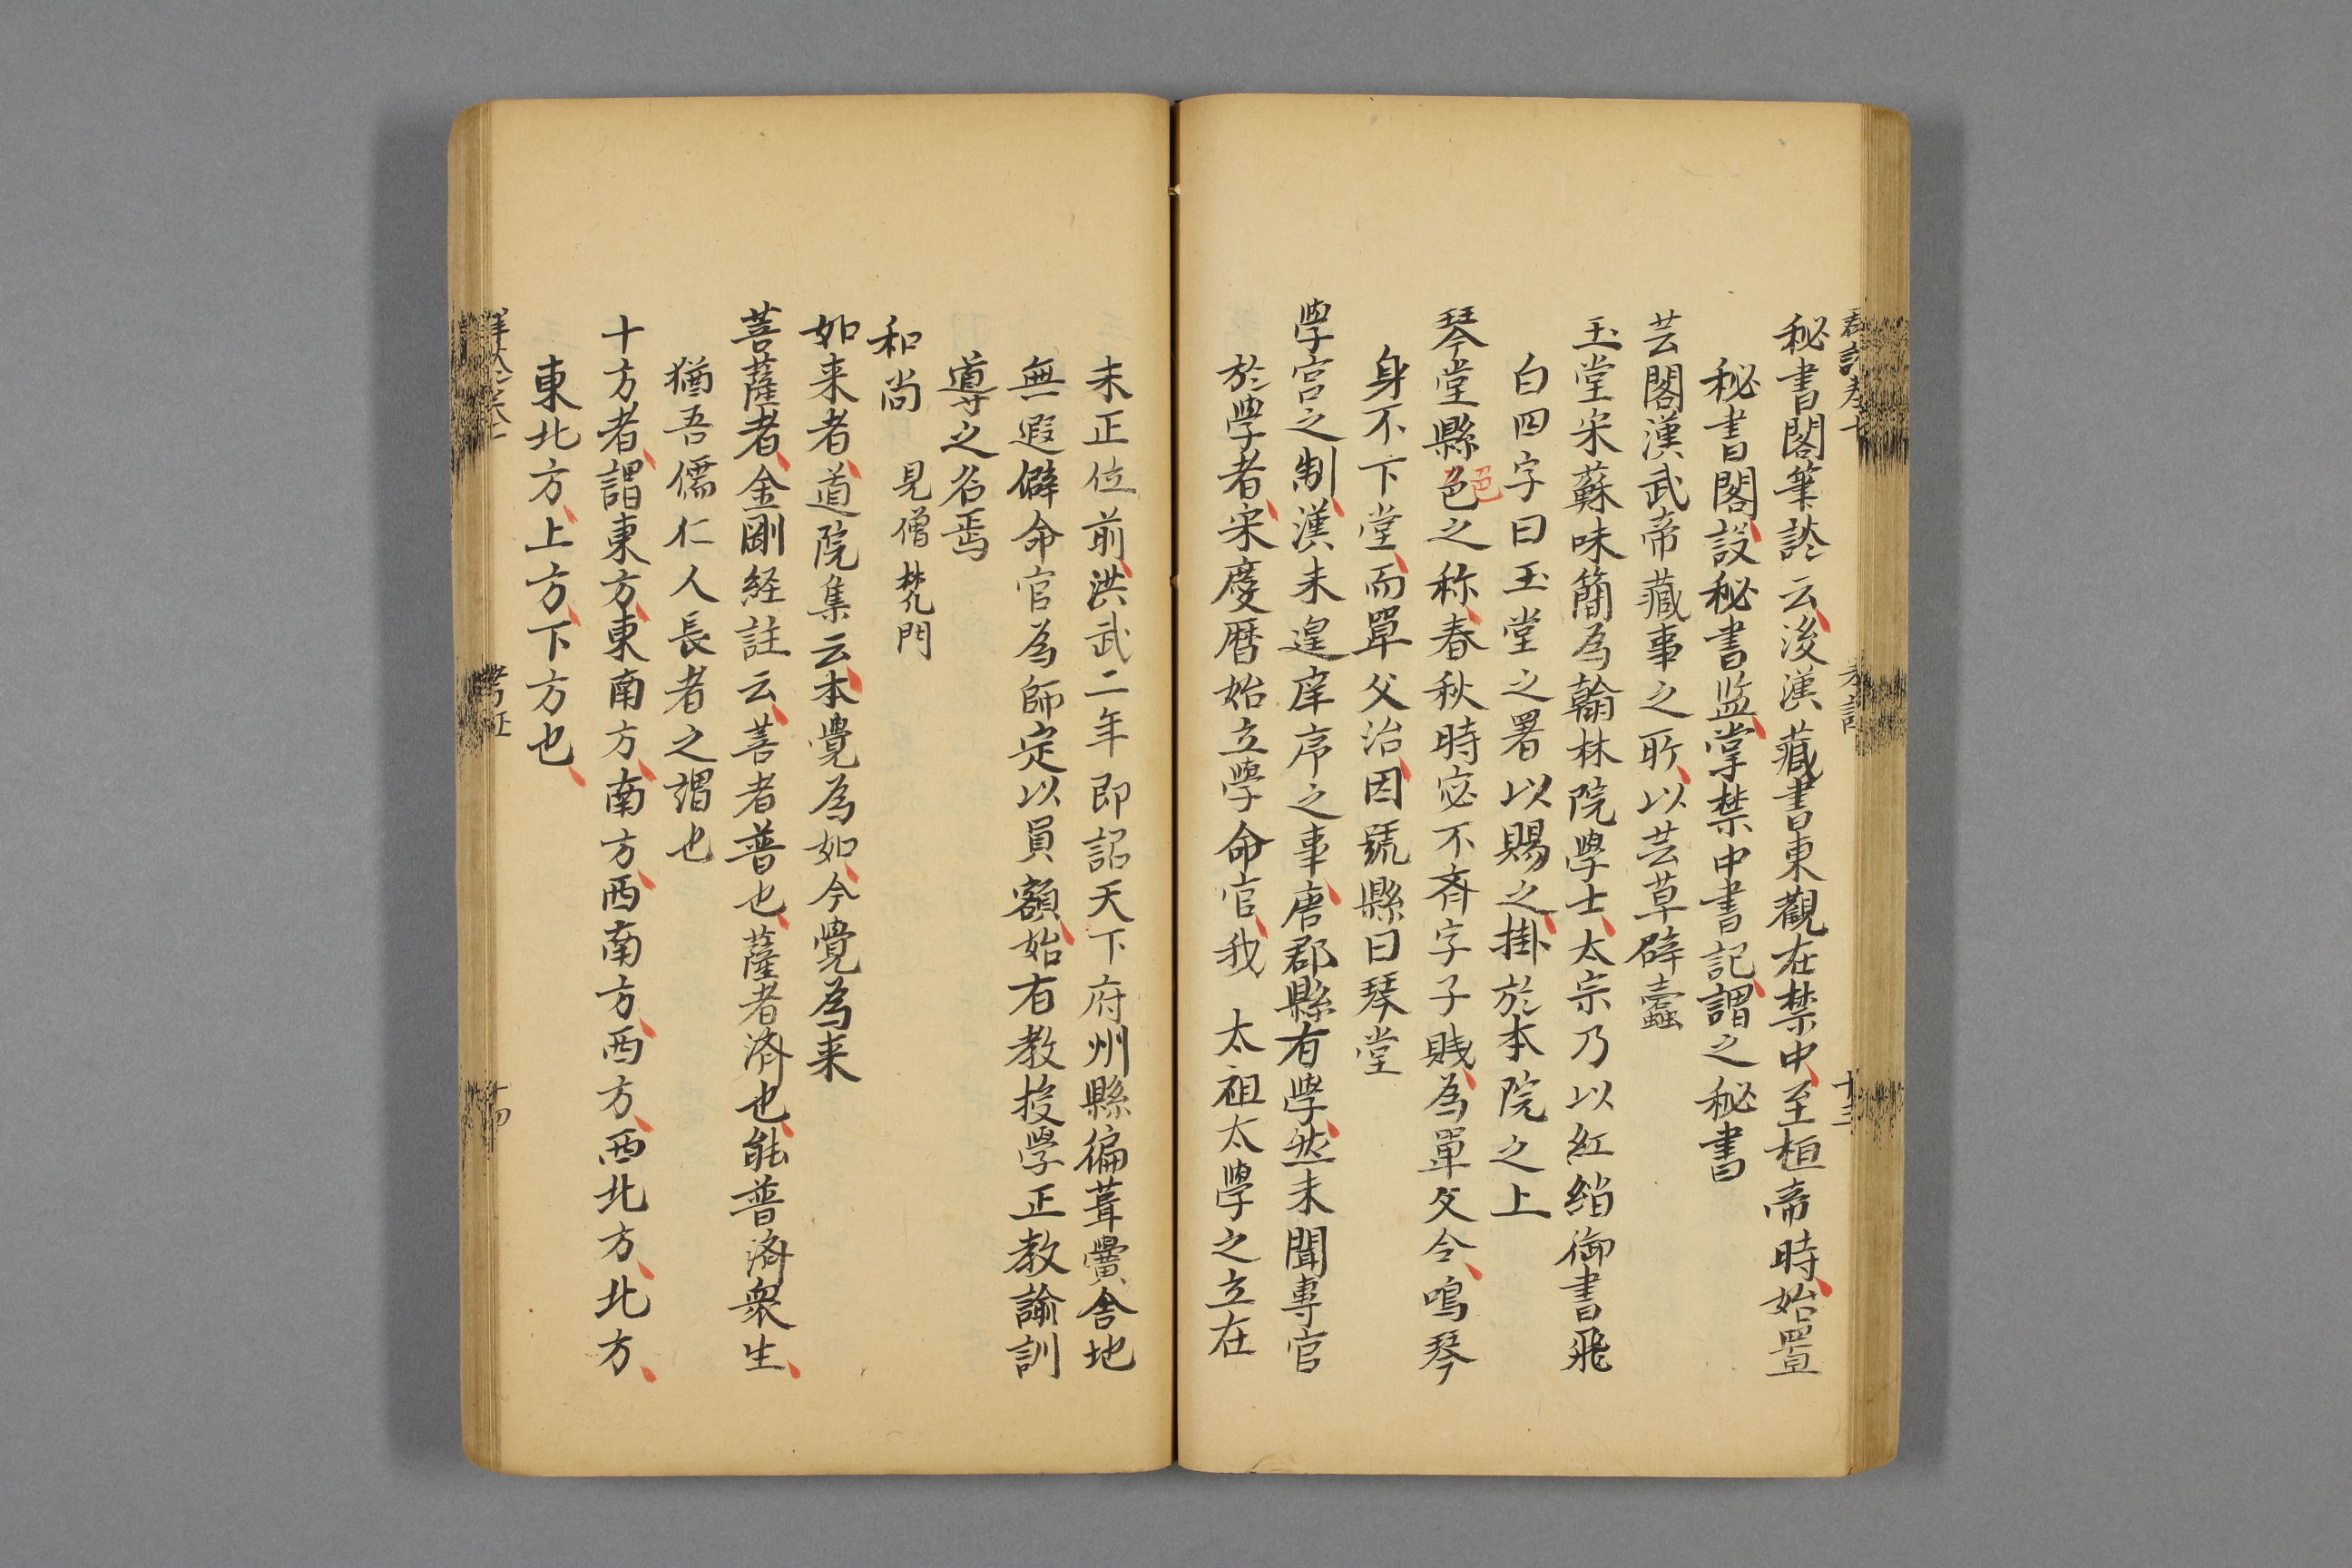 秘書閣筆談云後漢藏書東觀在禁中至桓帝時始置
秘書閣設秘書监掌禁中書記謂之秘書
芸閣漢武帝藏事之所以芸草辟蠹
玉堂宋蘇味簡為翰林院學士太宗乃以紅綃御書飛
白四字曰玉堂之署以賜之掛於本院之上
琴堂縣邑之称春秋時宓不齊字子賎為單父令鳴琴
邑
身不下堂而單父治因號縣曰琴堂
學宫之制漢未遑庠序之事唐郡縣有學然未聞專官
於學者宋慶暦始立學命官我 太祖太學之立在
未正位前洪武二年即詔天下府州縣徧葺黌舍地
無遐僻命官為師定以員額始有教授學正教諭訓
導之名焉
和尚 見僧梵門
如来者道院集云本覺為如今覺為来
菩薩者金剛経註云菩者普也薩者濟也能普濟衆生
猶吾儒仁人長者之謂也
十方者謂東方東南方南方西南方西方西北方北方
東北方上方下方也
十四